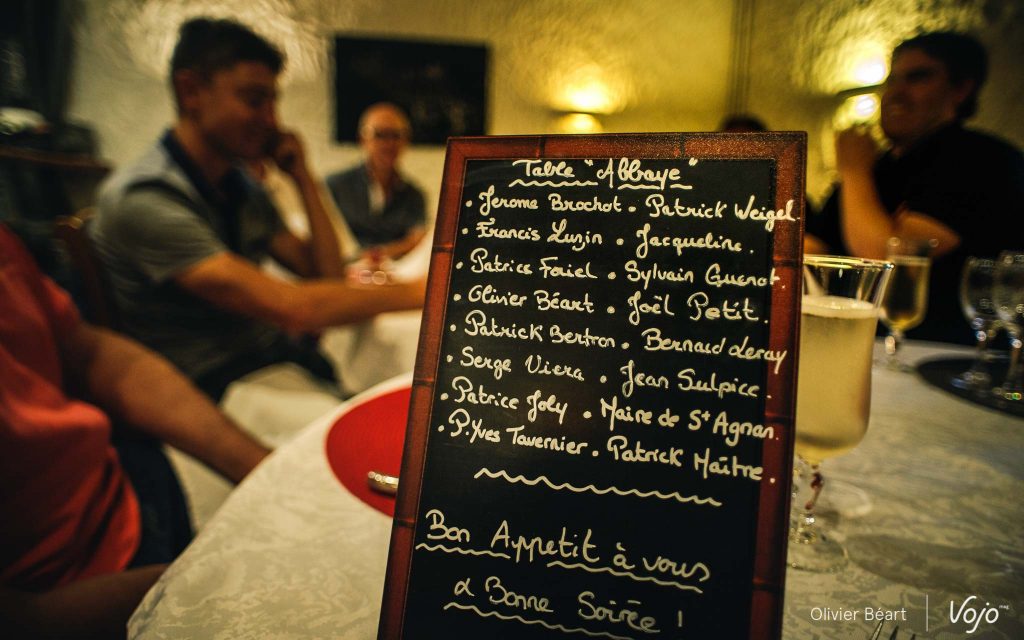 Table "Abbaye"
• Jerome Brochot • Patrick Weigel.
• Francis Luzin • Jacqueline.
• Patrice Foriel • Sylvain Guenot.
• Olivier Béart • Joël Petit.
• Patrick Bertron • Bernard Leray
• Serge Viera • Jean Sulpice.
• Patrice Joly • Maire de St Agnan.
• P.Yves Tavernier • Patrick Maître.
Bon Appetit à vous
& Bonne Soirée !
Olivier Béart | Vojo mag